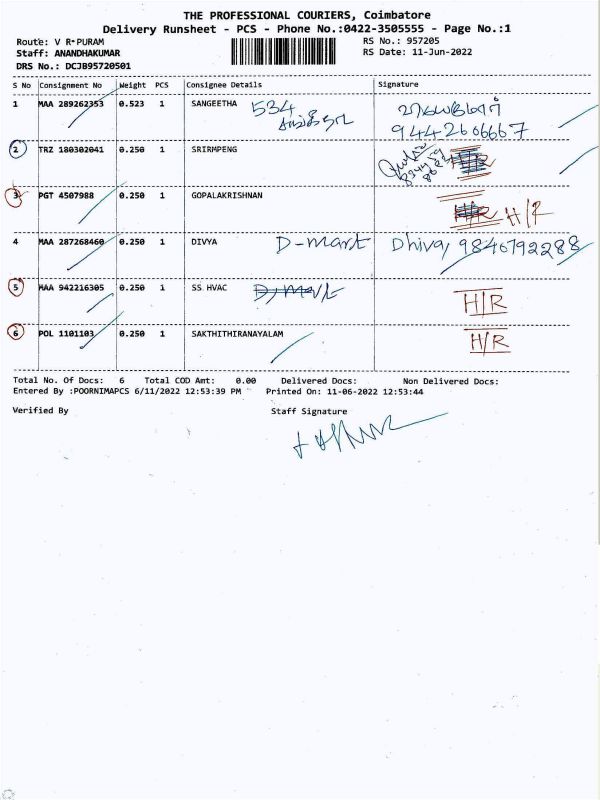 THE PROFESSIONAL COURIERS, Coimbatore
Delivery Runsheet - PCS - Phone No.:0422-3505555 - Page No.:1
Route: V R-PURAM RS No.: 957205
Staff: ANANDHAKUMAR RS Date: 11-Jun-2022
DRS No.: DCJB95720501
S No Consignment No Weight PCS Consignee Details Signature
1 MAA 289262353 0.523 1 SANGEETHA 534
9442606667
2 TRZ 180302041 0.250 1 SRIRMPENG
3 PGT 4507988 0.250 1 GOPALAKRISHNAN H/R H/R
4 MAA 287268460 0.250 1 DIVYA D-mart Dhiva, 9846792288
5 MAA 942216305 0.250 1 SS HVAC D-Mart H/R
6 POL 1101103 0.250 1 SAKTHITHIRANAYALAM H/R
Total No. Of Docs: 6 Total COD Amt: 0.00 Delivered Docs: Non Delivered Docs:
Entered By :POORNIMAPCS 6/11/2022 12:53:39 PM Printed On: 11-06-2022 12:53:44
Verified By Staff Signature